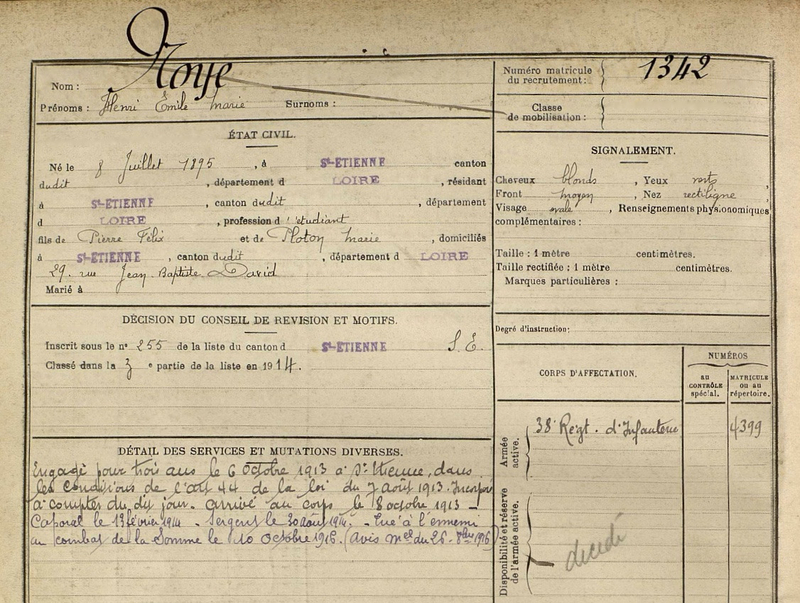 Nom : Noye
Prénoms : Henri Emile Marie Surnoms :
ÉTAT CIVIL.
Né le 8 Juillet 1895 , à St-ETIENNE canton
dudit , département d LOIRE , résidant
à St-ETIENNE , canton dudit , département
d LOIRE , profession d'étudiant
fils de Pierre Félix et de Ploton Marie , domiciliés
à St-ETIENNE , canton dudit , département d LOIRE
29, rue Jean-Baptiste David
Marié à
DÉCISION DU CONSEIL DE REVISION ET MOTIFS.
Inscrit sous le no 255 de la liste du canton d St-ETIENNE S. E.
Classé dans la 3 e partie de la liste en 1914.
DÉTAIL DES SERVICES ET MUTATIONS DIVERSES.
Engagé pour trois ans le 6 Octobre 1913 à St Etienne, dans
les conditions de l'art 44 de la loi du 7 août 1913. Incorporé
à compter du dit jour. arrivé au corps le 8 octobre 1913 -
Caporal le 13 février 1914 - Sergent le 30 août 1914. - Tué à l'ennemi
au combat de la Somme le 10 Octobre 1916. (Avis Mel du 26-8bre 1916)
Numéro matricule
du recrutement : 1342
Classe
de mobilisation :
SIGNALEMENT.
Cheveux blonds , Yeux verts ,
Front moyen , Nez rectiligne ,
Visage ovale , Renseignements physionomiques
complémentaires :
Taille : 1 mètre centimètres.
Taille rectifiée : 1 mètre centimètres.
Marques particulières :
Degré d'instruction :
CORPS D'AFFECTATION.
NUMÉROS
au
CONTRÔLE
spécial.
MATRICULE
ou au
répertoire.
Armée
active.
38e Régt. d'Infanterie 4399
Disponibilité et réserve
de l'armée active.
décédé